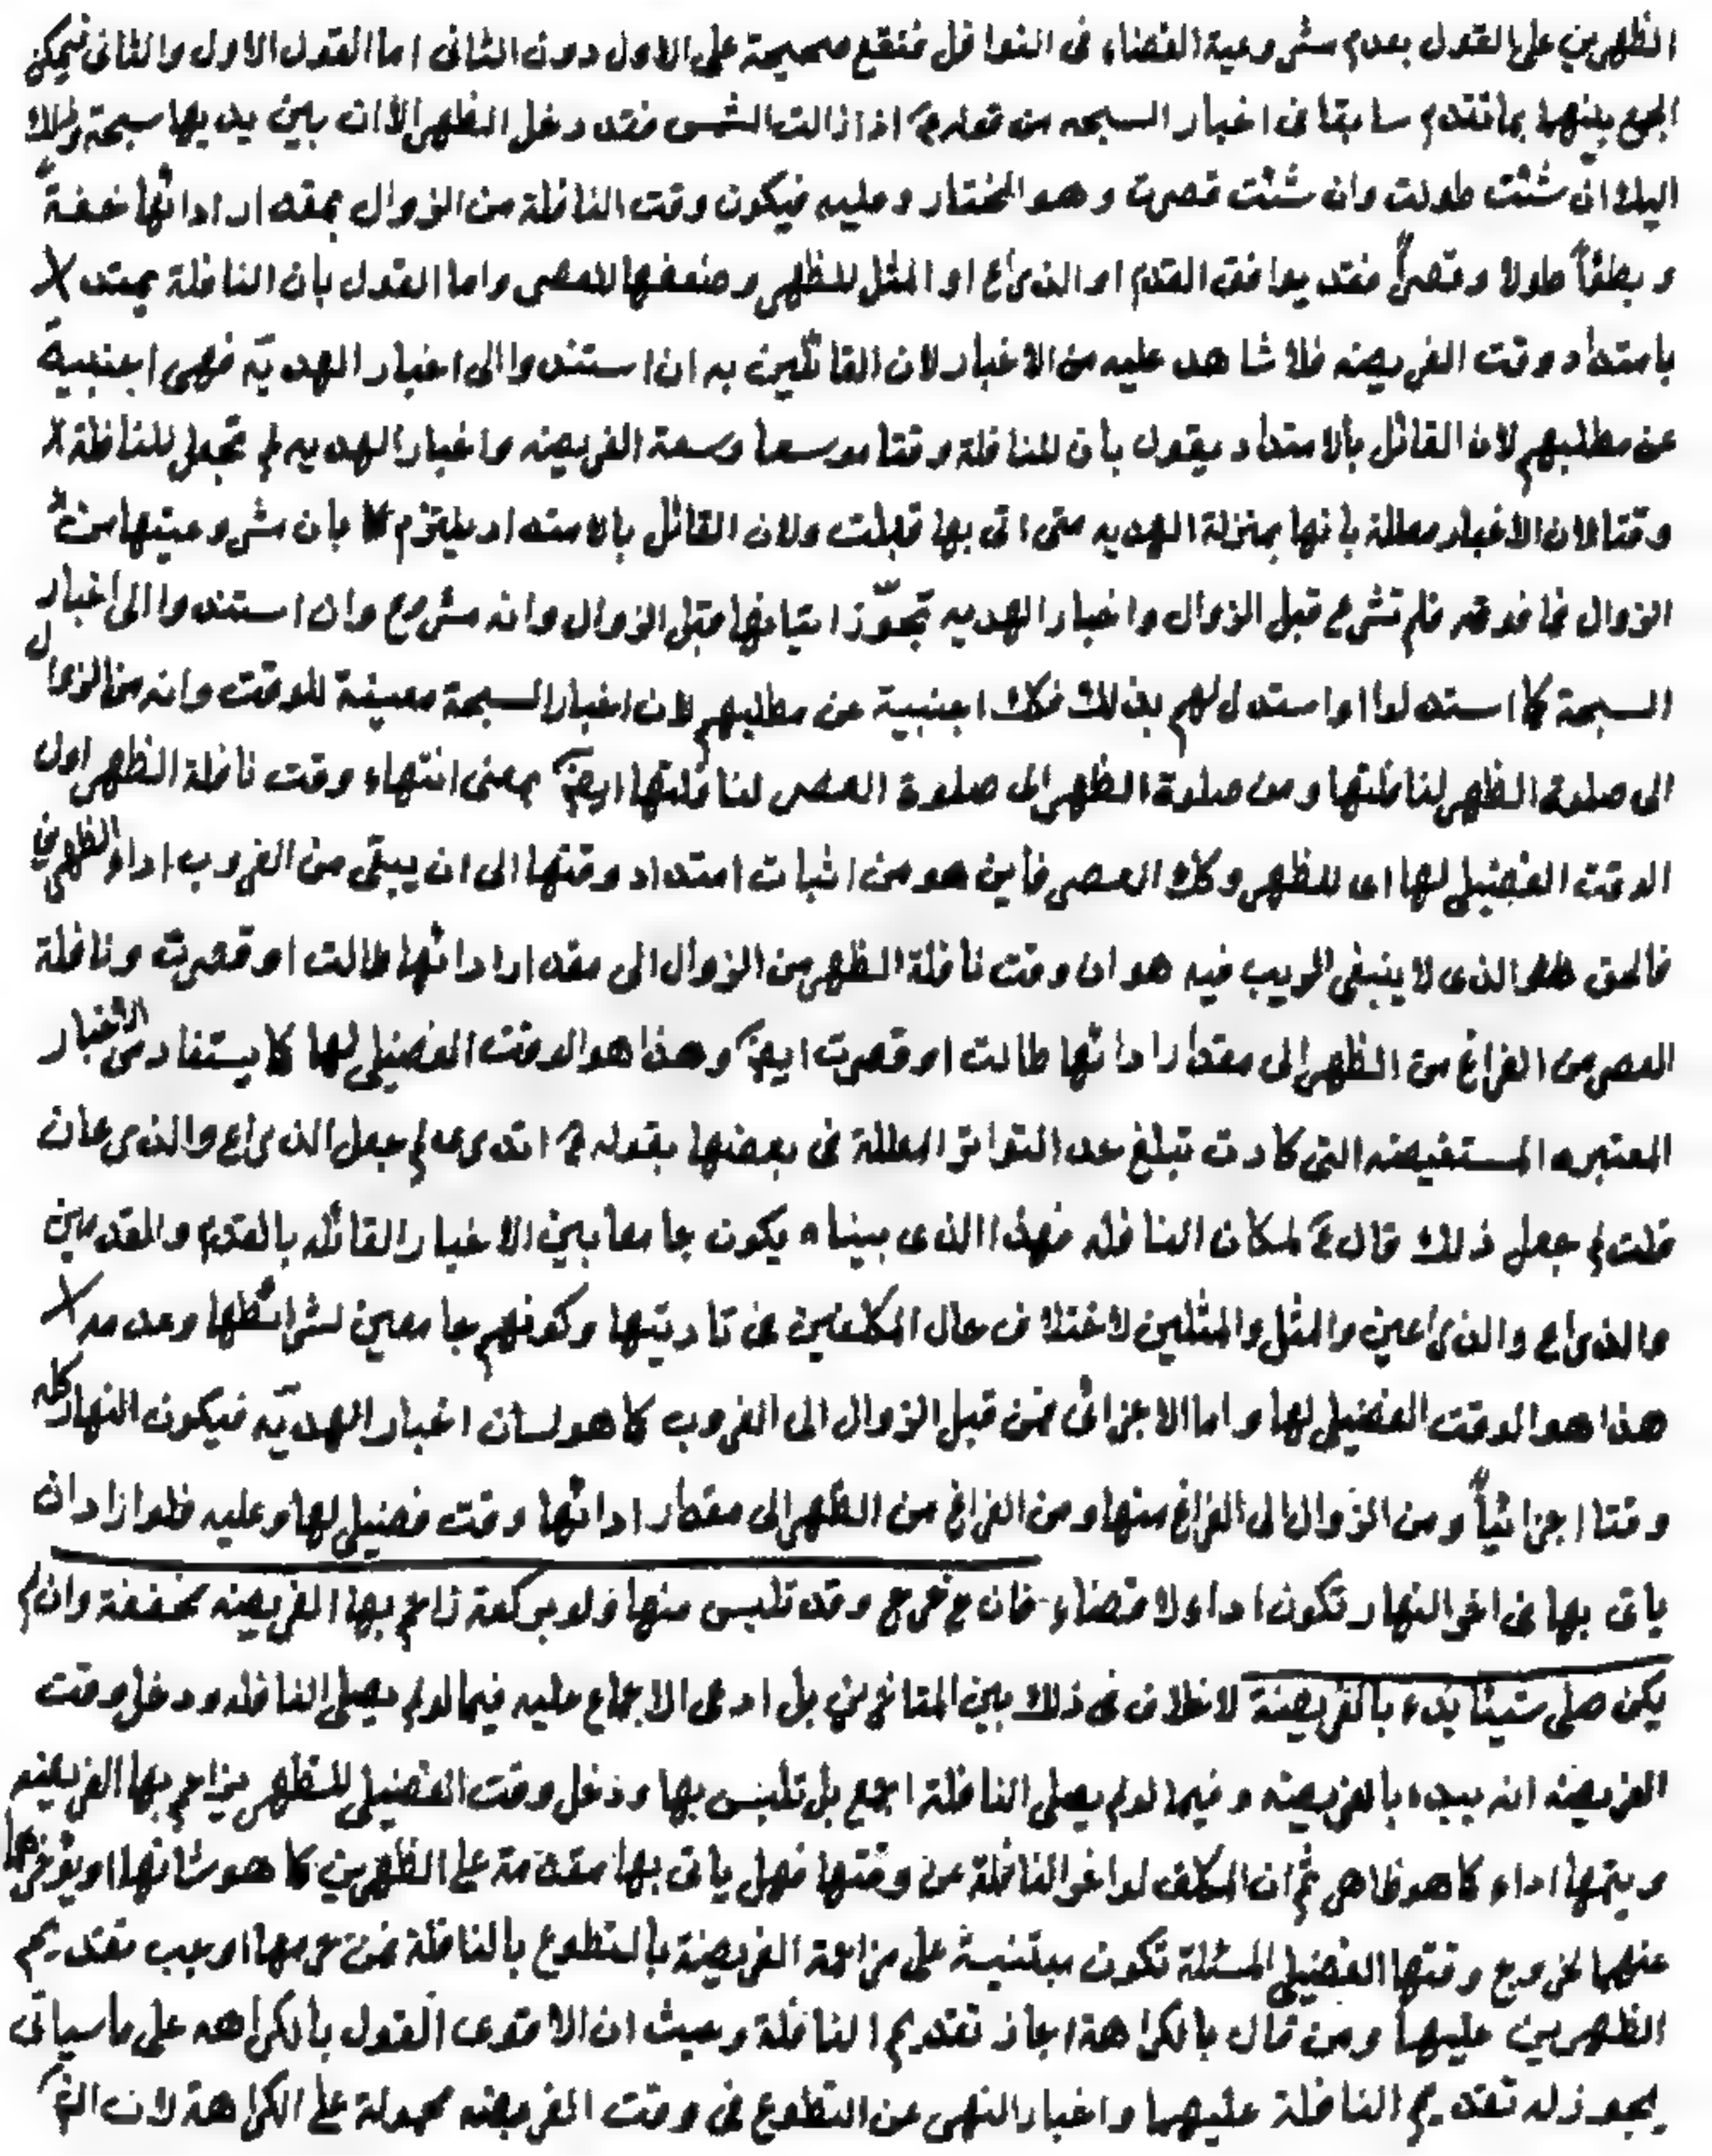 الظهرين على القول بعدم مشروعية القضاء فى النوافل فتقع صحيحة على الاول دون الثانى اما القول الاول والثانى فيمكن
الجمع بينهما بما تقدم سابقا فى اخبار السبحه من قوله ع اذا زالت الشمس فقد دخل الظهر الا ان بين يديها سبحة وذلك
اليك ان شئت طولت وان شئت قصرت وهو المختار وعليه فيكون وقت النافلة من الزوال بمقدار ادائها خفة
و بطئاً طولا وقصراً فقد يوافق القدم او الذراع او المثل للظهر وضعفها للعصر واما القول بان النافلة يمتد
بامتداد وقت الفريضه فلا شاهد عليه من الاخبار لان القائلين به ان استندوا الى اخبار الهديّه فهى اجنبية
عن مطلبهم لان القائل بالامتداد يقول بان للنافلة وقتا موسعا وسعة الفريضه واخبار الهديه لم تجعل للنافلة
وقتا لان الاخبار معللة بانها بمنزلة الهديه متى اتى بها قبلت ولان القائل بالامتداد ملتزم بان مشروعيتها من
الزوال فما فوقه فلم تشرع قبل الزوال واخبار الهديه تجوّز اتيانها قبل الزوال وانه مشروع وان استندوا الى اخبار
السبحة كما استدلوا او استدل لهم بذلك فكك اجنبية عن مطلبهم لان اخبار السبحة معينة للوقت وانه من الزوال
الى صلوة الظهر لنافلتها ومن صلوة الظهر الى صلوة العصر لنافلتها ايضاً بمعنى انتهاء وقت نافلة الظهر اول
الوقت الفضيلى لها اى للظهر وكك العصر فأين هو من اثبات امتداد وقتها الى ان يبقى من الغروب اداء الظهرين
فالحق الذى لا ينبغى الريب فيه هو ان وقت نافلة الظهر من الزوال الى مقدار ادائها طالت او قصرت ونافلة
العصر من الفراغ من الظهر الى مقدار ادائها طالت او قصرت ايضاً وهذا هو الوقت الفضيلى لها كما يستفاد من الاخبار
المعتبره المستفيضه التى كادت تبلغ حد التواتر المعللة فى بعضها بقوله ع اتدرى لم جعل الذراع والذراعان
قلت لم جعل ذلك قال ع لمكان النافله فهذا الذى بيناه يكون جامعا بين الاخبار القائله بالقدم والقدمين
والذراع والذراعين والمثل والمثلين لاختلاف حال المكلفين فى تاديتها وكونهم جامعين لشرائطها وعدمه
هذا هو الوقت الفضيلى لها واما الاجزائى فمن قبل الزوال الى الغروب كما هو لسان اخبار الهديّه فيكون النهار كله
وقتا اجزائياً ومن الزوال الى الفراغ منها ومن الفراغ من الظهر الى مقدار ادائها وقت فضيلى لها وعليه فلو اراد ان
ياتى بها فى اخر النهار تكون اداء لا قضاء فان خرج وقد تلبس منها ولو بركعة زاحم بها الفريضه مخففة وان لم
يكن صلى شيئا بدء بالفريضة لا خلاف فى ذلك بين المتاخرين بل ادعى الاجماع عليه فيما لو لم يصلى النافله ودخل وقت
الفريضه انه يبدء بالفريضه وفيما لو لم يصلى النافلة اجمع بل تلبس بها ودخل وقت الفضيلى للظهر يزاحم بها الفريضه
ويتمها اداء كما هو ظاهر ثم ان المكلف لو اخر النافلة عن وقتها فهل ياتى بها مقدمة على الظهرين كما هو شانها او يؤخرها
عنهما لخروج وقتها الفضيلى المسئلة تكون مبتنية على مزاحمة الفريضة بالتطوع بالنافلة فمن حرمها اوجب تقديم
الظهرين عليها ومن قال بالكراهة اجاز تقديم النافلة وحيث ان الاقوى القول بالكراهه على ما سياتى
يجوز له تقديم النافلة عليهما واخبار النهى عن التطوع فى وقت الفريضه محمولة على الكراهة لان